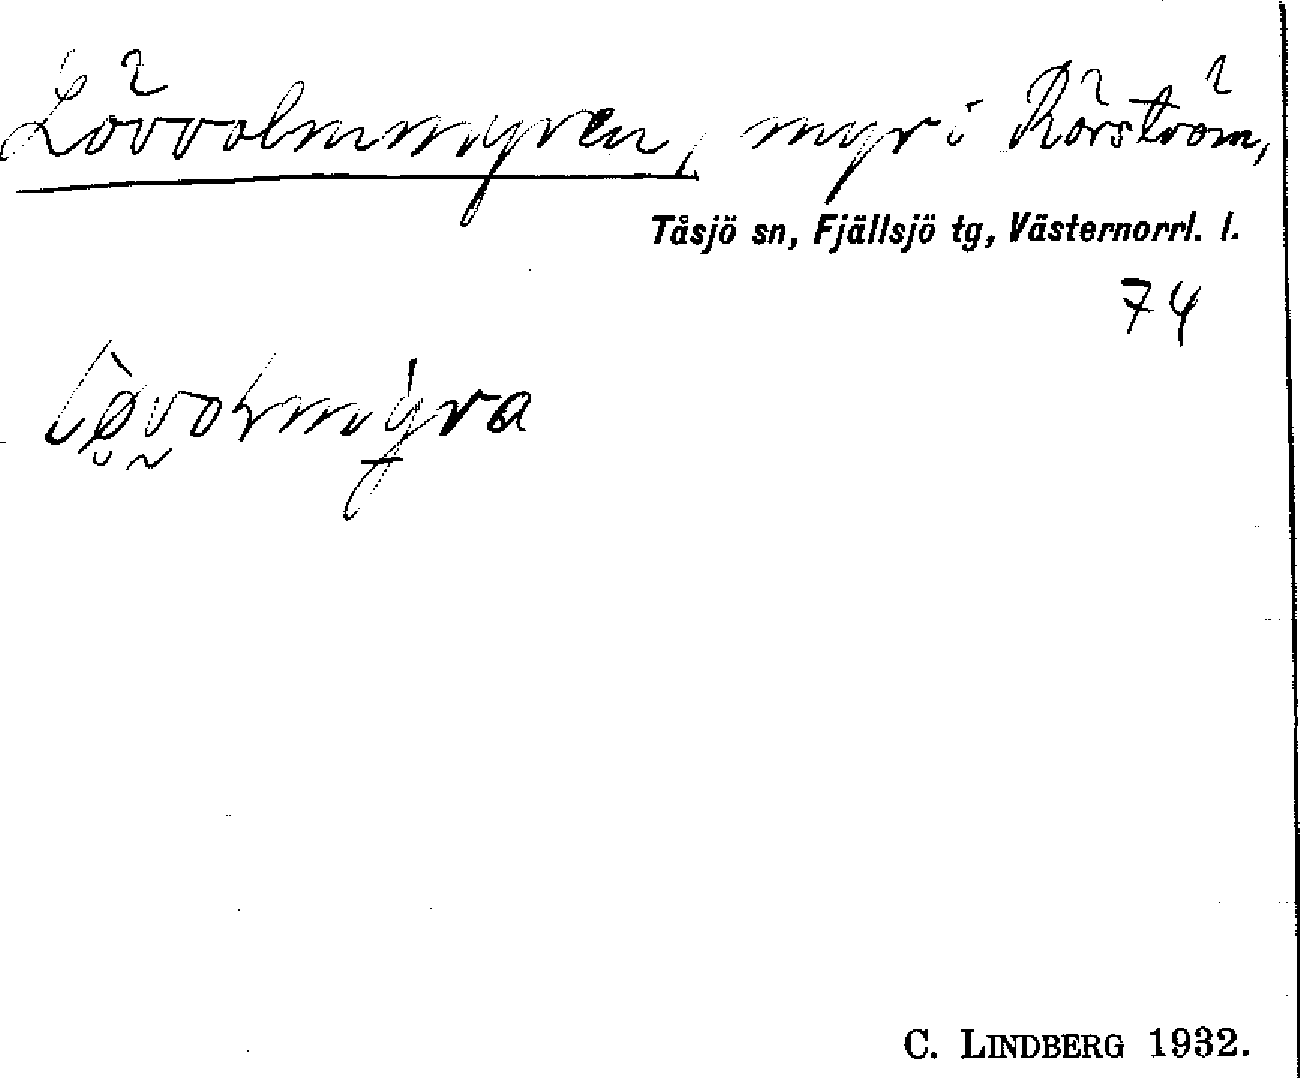 Lövvolmmyren, myr i Rörström,
Tåsjö sn, Fjällsjö tg, Västernorrl. l.
74
C. LINDBERG 1932.